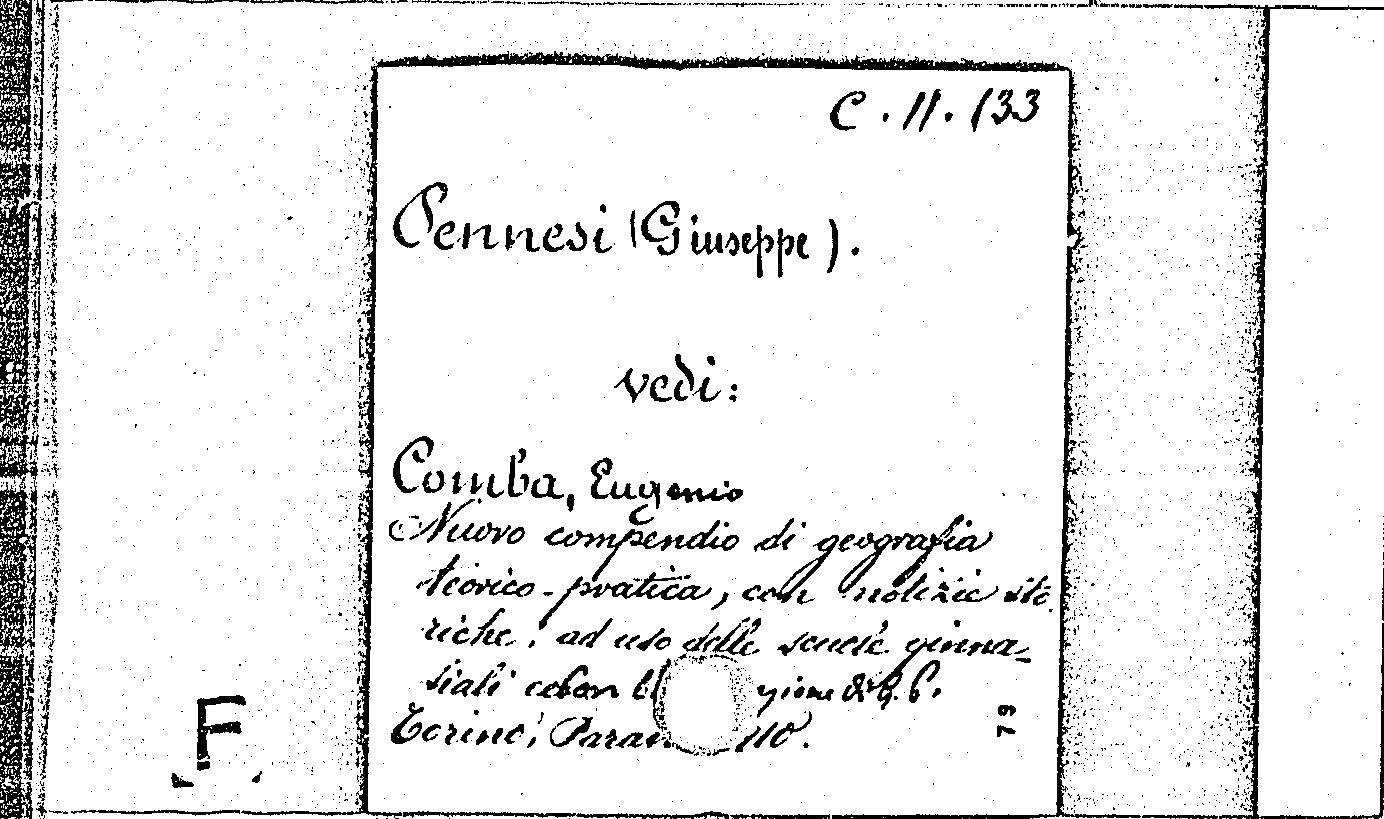 C. 11. 133
Pennesi (Giuseppe).
vedi:
Comba, Eugenio
Nuovo compendio di geografia
teorico-pratica, con notizie sto
riche: ad uso delle scuole ginna-
siali gione di G. P.
Torino, Paran llo.
79
F